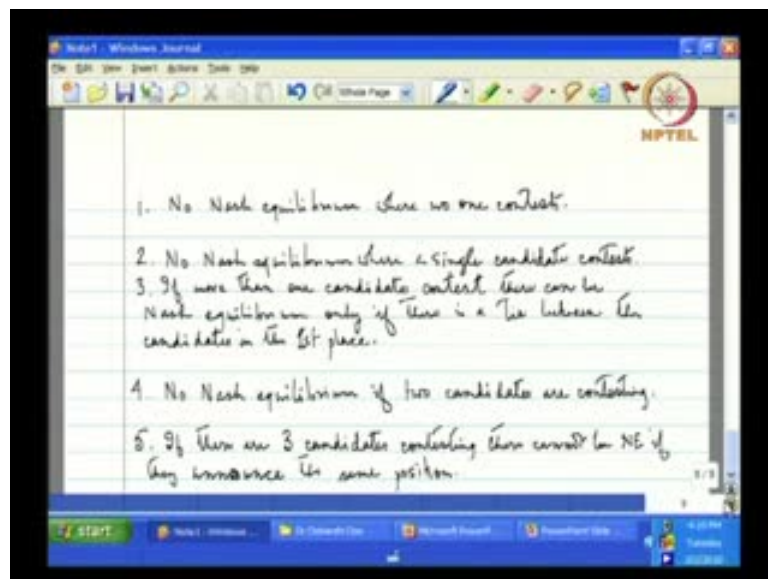 Note1 - Windows Journal
File Edit View Insert Actions Tools Help
Whole Page
NPTEL
1. No Nash equilibrium where no one contests.
2. No Nash equilibrium where a single candidate contests.
3. If more than one candidates contest there can be
Nash equilibrium only if there is a Tie between the
candidates in the 1st place.
4. No Nash equilibrium if two candidates are contesting.
5. If there are 3 candidates contesting there cannot be NE if
they announce the same position.
5/5
start
Note1 - Windows
Microsoft PowerP
PowerPoint Slide
Tuesday